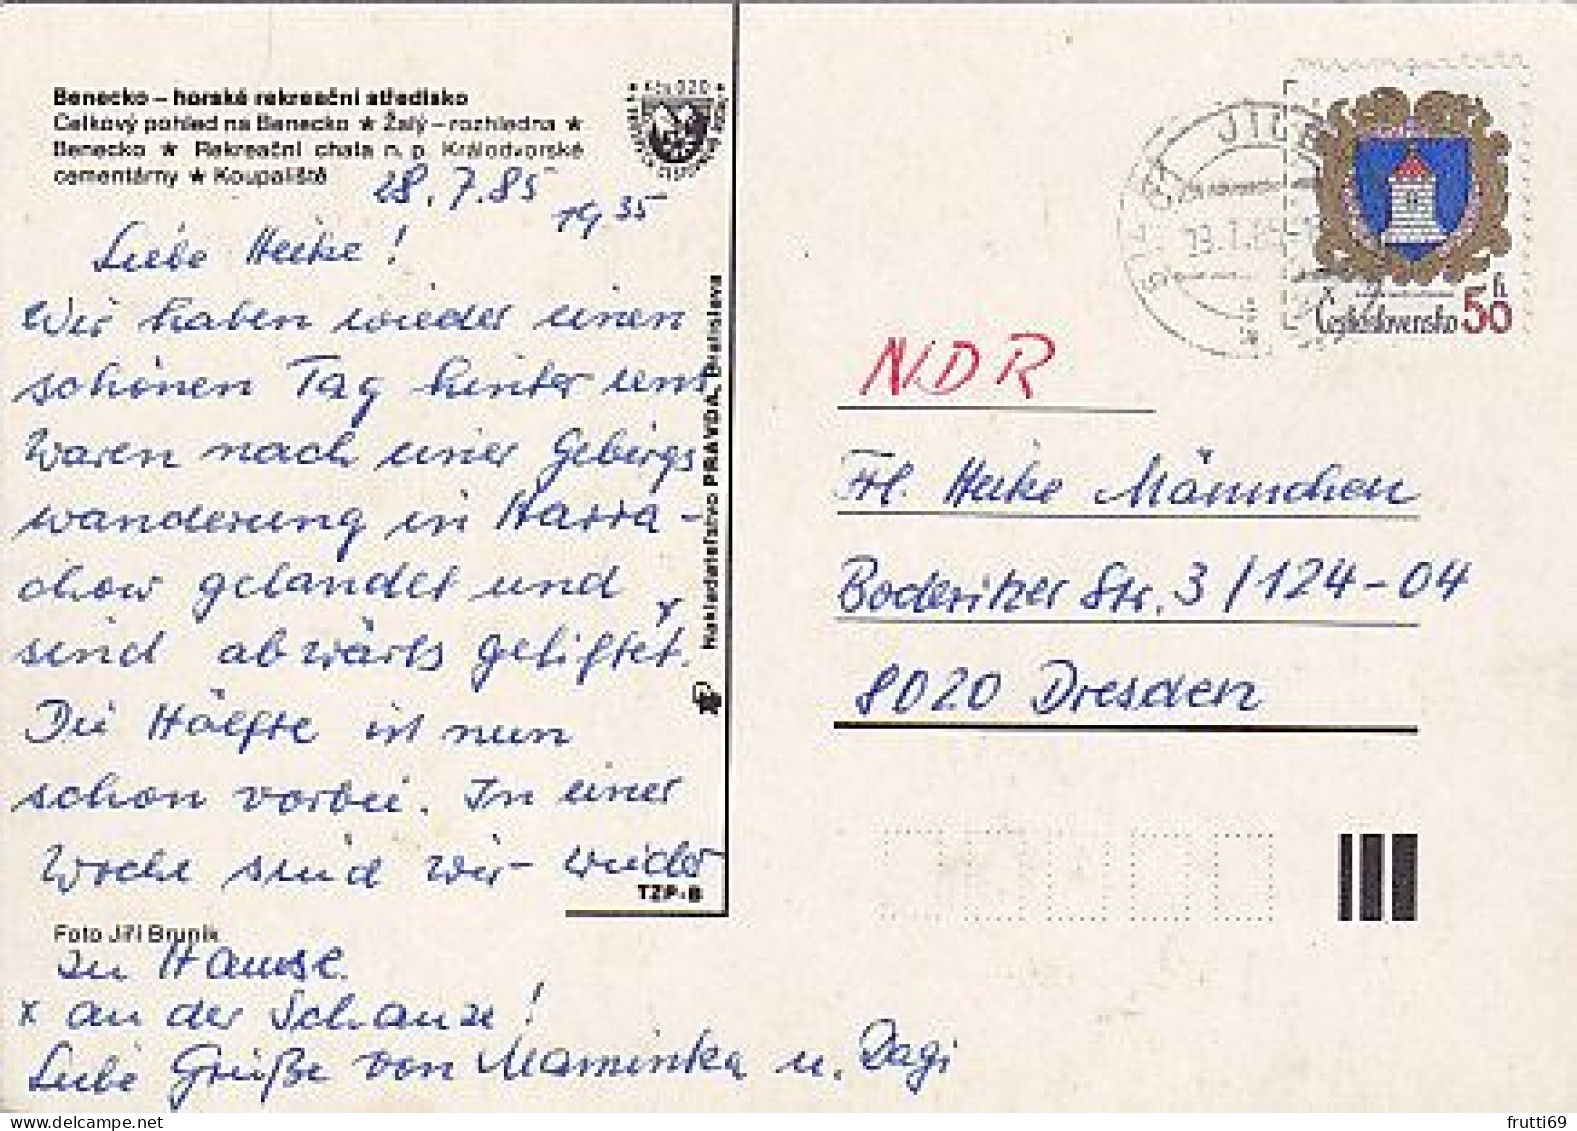 Benecko – horské rekreační středisko
Celkový pohled na Benecko ★ Žalý – rozhledna ★
Benecko ★ Rekreační chata n. p. Královodvorské
cementárny ★ Koupaliště
28.7.85
19.35
Liebe Heike!
Wir haben wieder einen
schönen Tag hinter uns
Waren nach einer Gebirgs
wanderung in Harra-
chow gelandet und x
sind abwärts geliftet.
Die Hälfte ist nun
schon vorbei. In einer
Woche sind wir wieder
TZP-B
Foto Jiří Brunik
zu Hause.
x an der Schanze!
Liebe Grüße von Maminka u. Dagi
Nakladateľstvo PRAVDA, Bratislava
Československo 50 h
NDR
Frl. Heike Männchen
Boderitzer Str. 3/124-04
8020 Dresden
frutti69